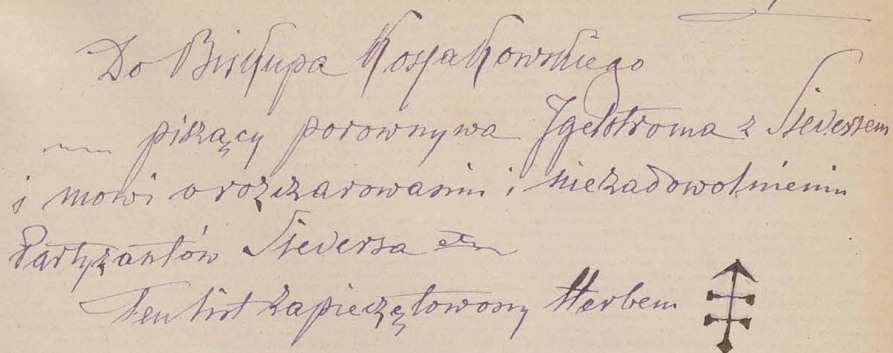 Do Biskupa Kossakowskiego
piszący porownywa Jgelstroma z Sieversem
i mowi o rozczarowaniu i niezadowolnieniu
Partyzantów Sieversa etc
Ten list zapieczętowony Herbem